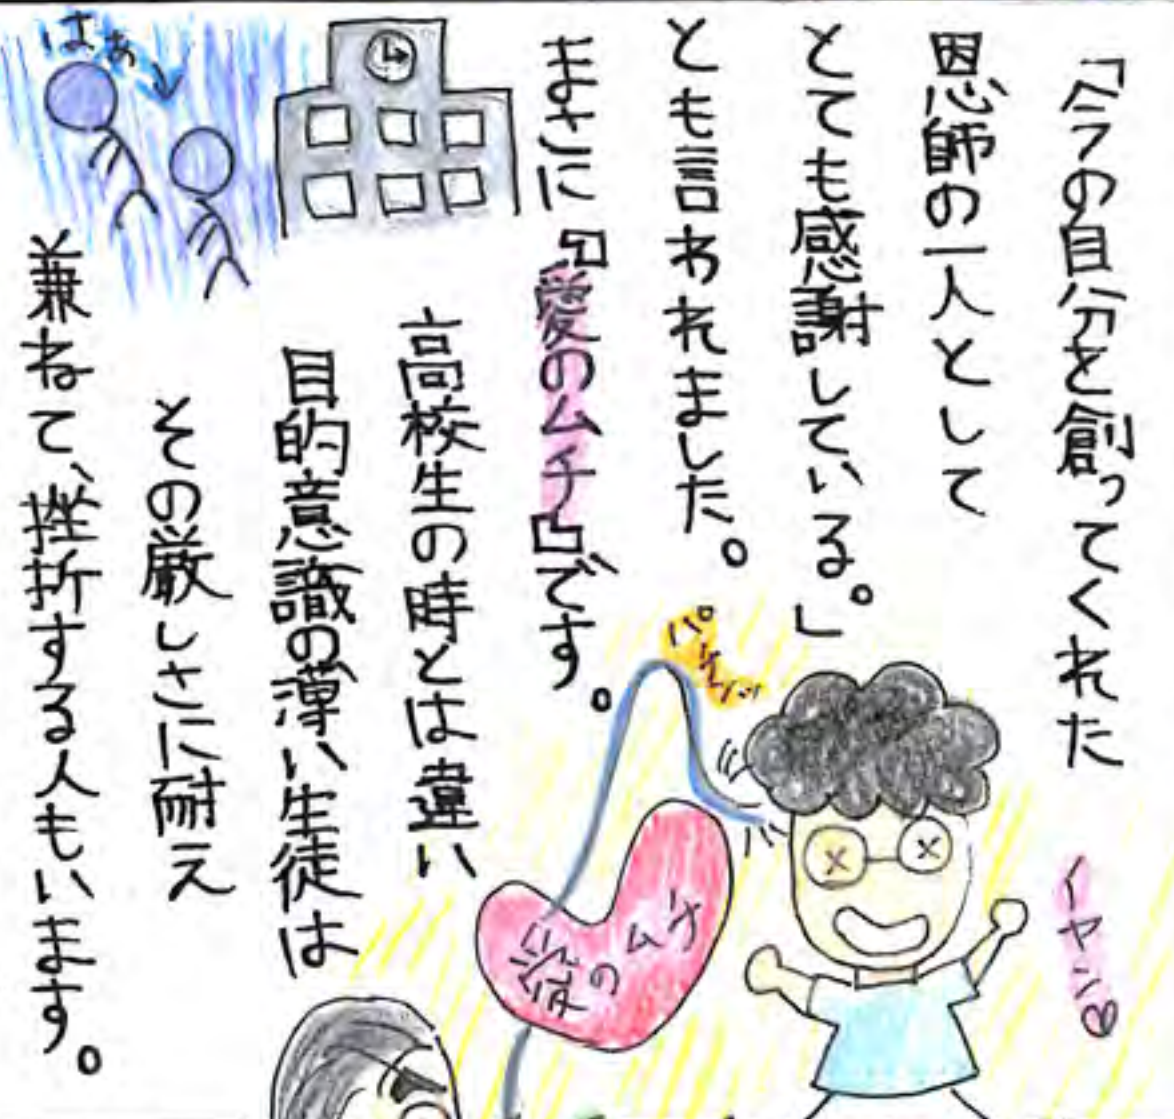 「今の自分を創ってくれた
恩師の一人として
とても感謝している。」
とも言われました。
まさに『愛のムチ』です。
高校生の時とは違い
目的意識の薄い生徒は
その厳しさに耐え
兼ねて、挫折する人もいます。
はぁ
イヤン♡
愛のムチ